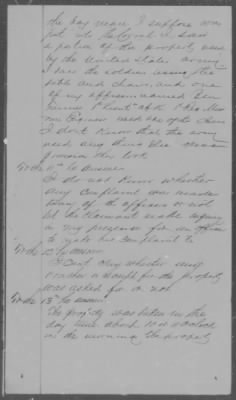 the hay near I suppose was
put into the I saw
a portion of the property used
by the United States army
I saw the soldiers using the
table and chairs, and one
of my officers named
1st Lieut of the 1st
used one of the chairs
I dont know that the army
used any thing else
from this lot
To the 11th he answers
I do not know whether
any complaint was made
to any of the officers or not
let the claimant made inquiry
in my presence for an officer
to make his complaint to
To the 12th he answers
I cant say whether any
voucher or receipt for the property
was asked for or not
To the 13th he answers
The property was taken in the
day time about 10 or o'clock
in the morning the property